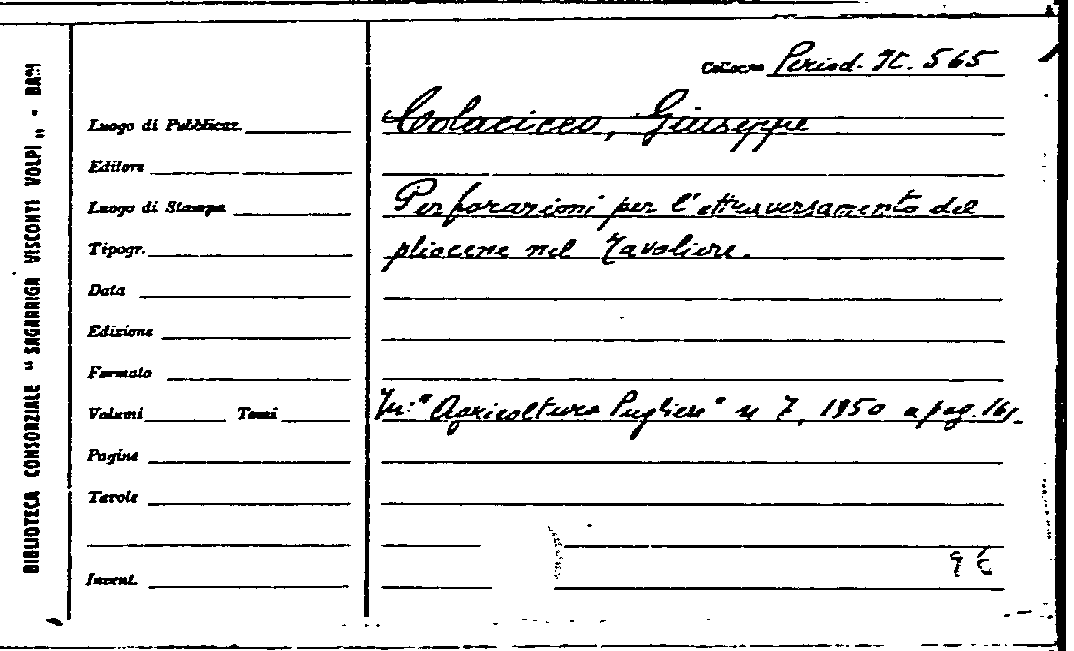 BIBLIOTECA CONSORZIALE "SAGARRIGA VISCONTI VOLPI" - BARI
Collocaz. Period. It. 565
Luogo di Pubblicaz.
Colacicco, Giuseppe
Editore
Luogo di Stampa
Perforazioni per l'attraversamento del
Tipogr.
pliocene nel Tavoliere.
Data
Edizione
Formato
Volumi Tomi
In: "Agricoltura Pugliese" n 7, 1950 a pag. 161-
Pagine
Tavole
Invent.